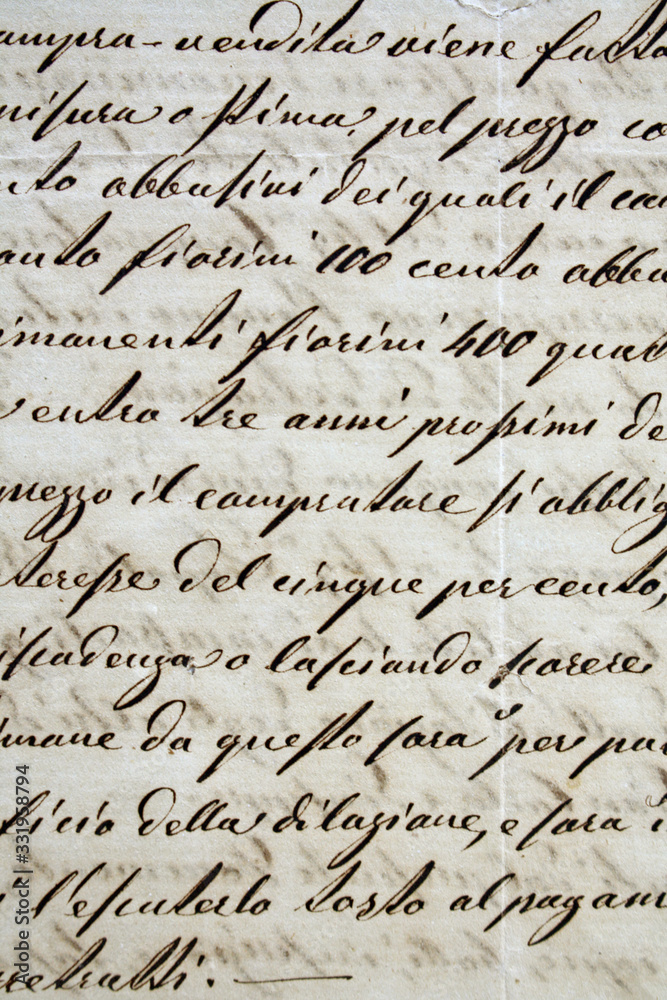 ompra-vendita viene fatta
misura o stima, pel prezzo co
nto abbusivi dei quali il co
anto fiorini 100 cento abbu
imanenti fiorini 400 quat
entro tre anni prossimi de
prezzo il compratore si obblig
teresse del cinque per cento,
scadenza o lasciando scorere
imane da questo sarà per par
ficio della dilazione, e sarà i
i l'escuterlo tosto al pagam
retratti. —
Adobe Stock | #331958794